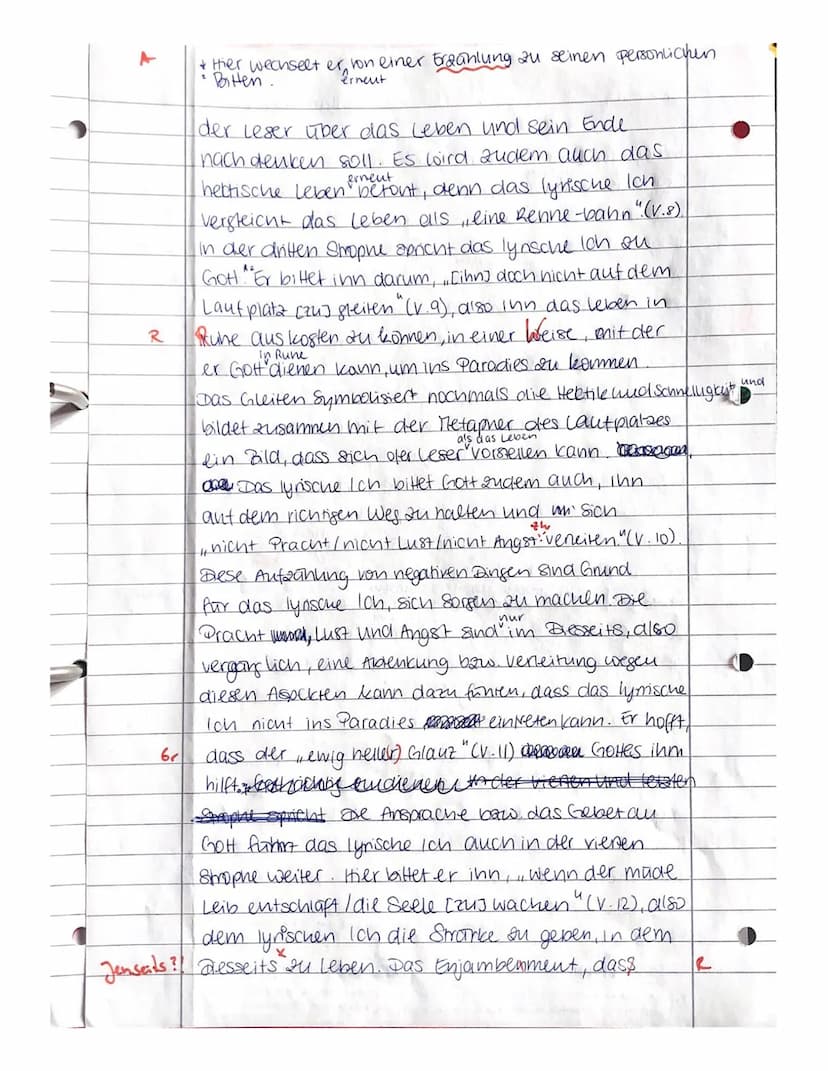 A * Hier wechselt er, von einer Erzählung zu seinen persönlichen
Bitten. erneut
der Leser über das Leben und sein Ende
nachdenken soll. Es wird zudem auch das
erneut
hektische Leben betont, denn das lyrische Ich
vergleicht das Leben als „eine Renne-bahn" (V.8).
In der dritten Strophe spricht das lyrische Ich zu
Gott. Er bittet ihn darum, „[ihn] doch nicht auf dem
Laufplatz [zu] gleiten" (V.9), also ihn das Leben in
R Ruhe auskosten zu können, in einer Weise, mit der
in Ruhe
er Gott dienen kann, um ins Paradies zu kommen.
Das Gleiten Symbolisiert nochmals die Hektik und Schnelligkeit und
bildet zusammen mit der Metapher des Laufplatzes
als das Leben
ein Bild, dass sich der Leser vorstellen kann.
Das lyrische Ich bittet Gott zudem auch, ihn
auf dem richtigen Weg zu halten und sich
zu
„nicht Pracht/nicht Lust/nicht Angst verleiten" (V.10).
Diese Aufzählung von negativen Dingen sind Grund
für das lyrische Ich, sich Sorgen zu machen. Die
nur
Pracht, Lust und Angst sind im Diesseits, also
vergänglich, eine Ablenkung bzw. Verleitung wegen
diesen Aspekten kann dazu führen, dass das lyrische
Ich nicht ins Paradies eintreten kann. Er hofft,
Gr dass der „ewig heller) Glanz" (V.11) Gottes ihm
hilft. in der vierten und letzten
Strophe spricht Die Ansprache bzw. das Gebet an
Gott führt das lyrische Ich auch in der vierten
Strophe weiter. Hier bittet er ihn, „wenn der müde
Leib entschläft/die Seele [zu] wachen" (V.12), also
dem lyrischen Ich die Stärke zu geben, in dem
Jenseits?! Diesseits x zu leben. Das Enjambemment, dass R